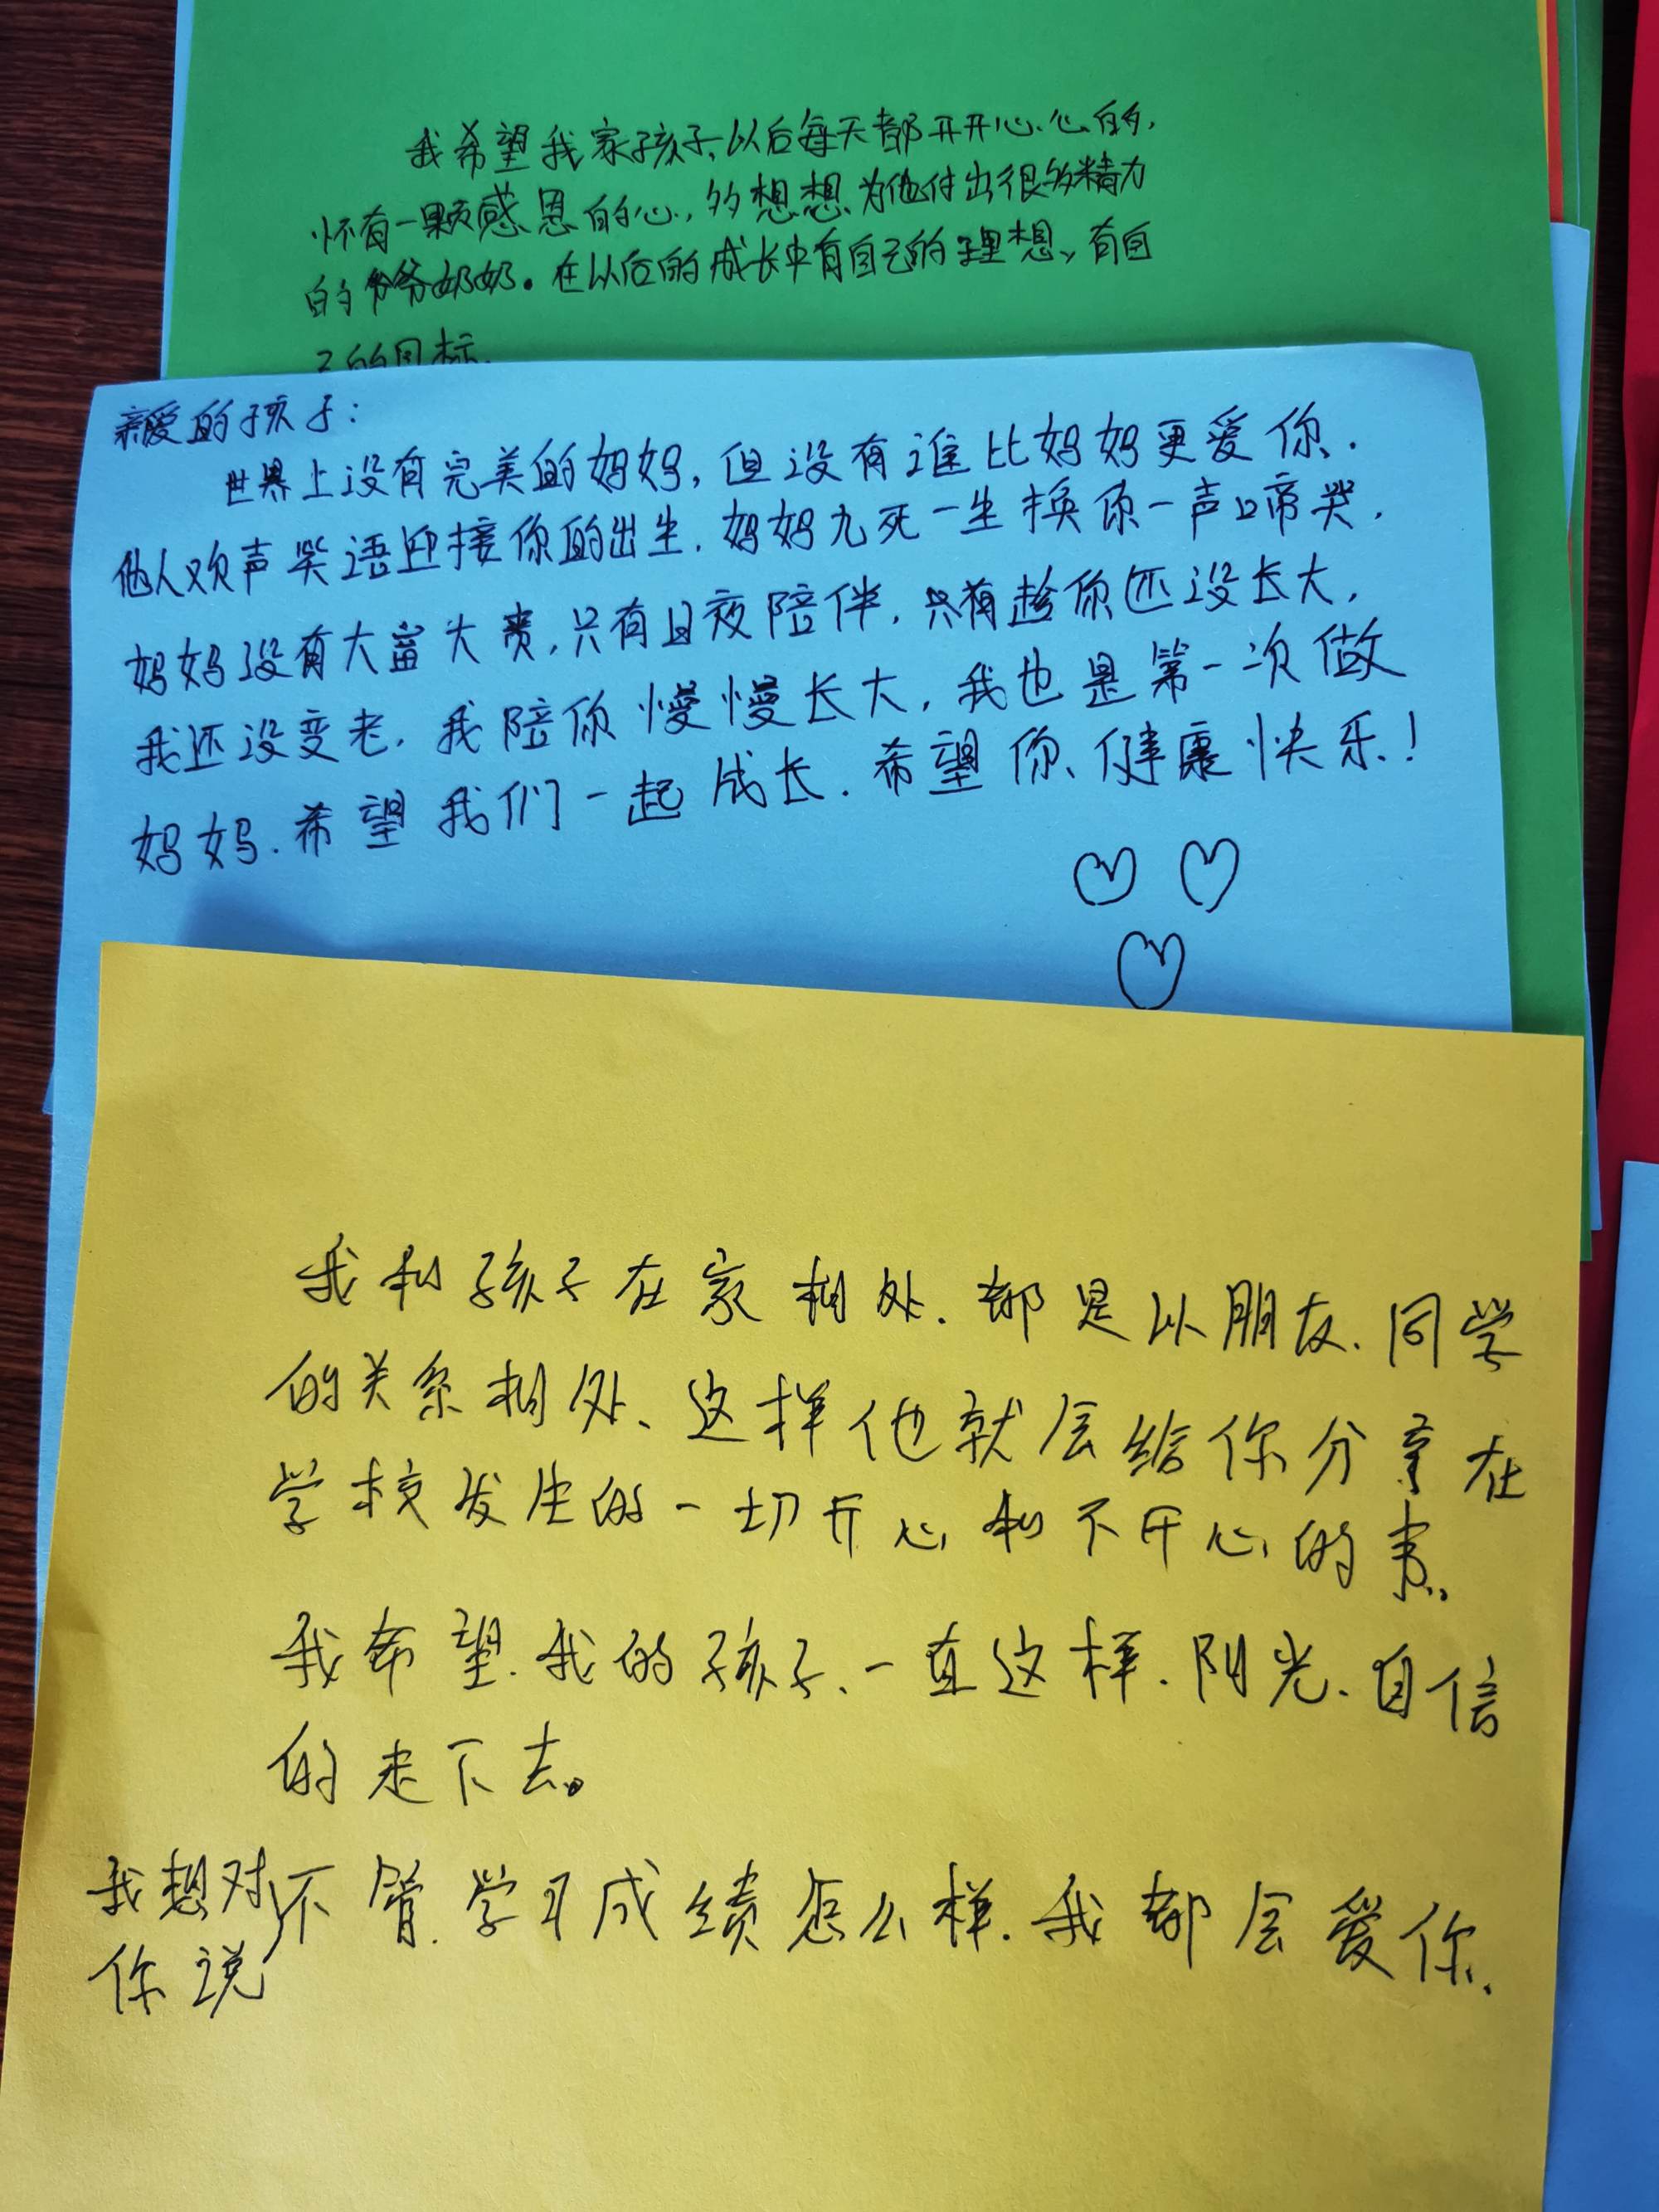 我希望我家孩子、以后每天都开开心心的,
怀有一颗感恩的心,多想想为他付出很多精力
的爷爷奶奶。在以后的成长中有自己的理想,有自
己的目标
亲爱的孩子:
世界上没有完美的妈妈,但没有谁比妈妈更爱你.
他人欢声笑语迎接你的出生.妈妈九死一生换你一声啼哭.
妈妈没有大富大贵,只有日夜陪伴,只有趁你还没长大,
我还没变老.我陪你慢慢长大,我也是第一次做
妈妈.希望我们一起成长.希望你、健康快乐!
我和孩子在家相处.都是以朋友.同学
的关系相处、这样他就会给你分享在
学校发生的一切开心和不开心的事。
我希望.我的孩子、一直这样.阳光、自信
的走下去。
我想对
你说
不管.学习成绩怎么样.我都会爱你.